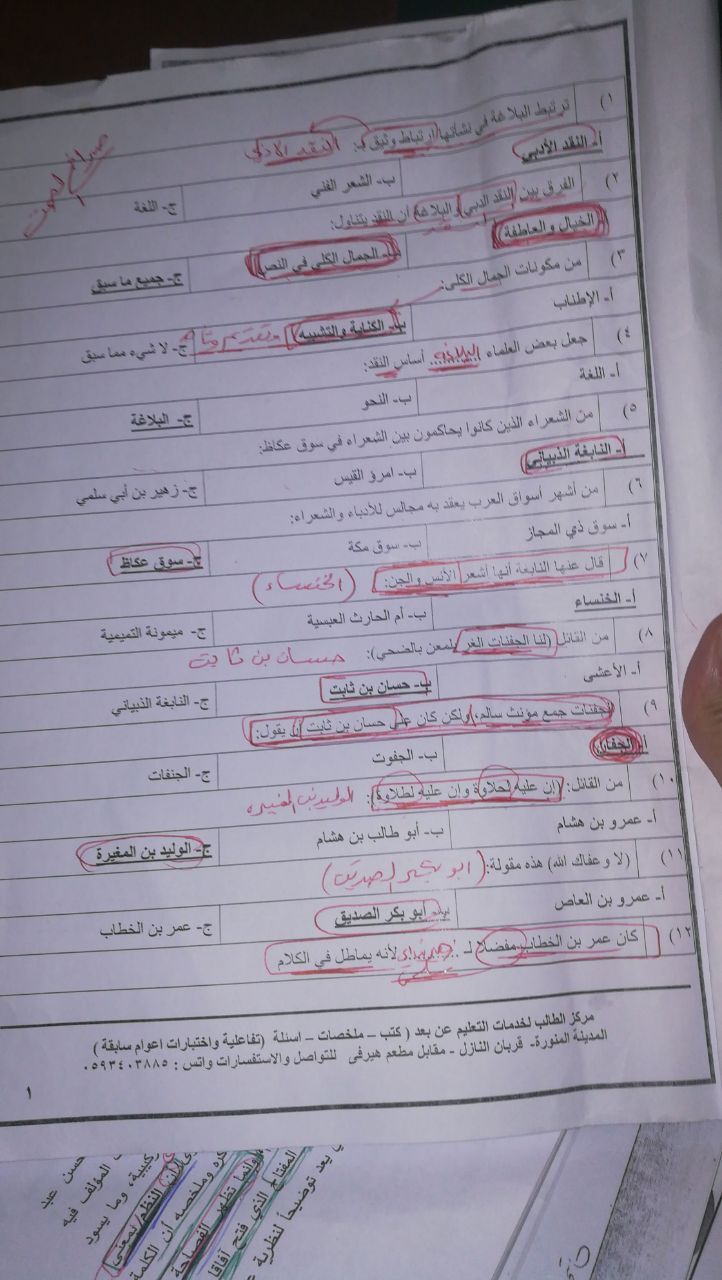 ١) ترتبط البلاغة في نشأتها ارتباط وثيق بـ: النقد الادبي
أ- النقد الأدبي ب- الشعر الفني ج- اللغة
٢) الفرق بين النقد الدبي والبلاغة أن النقد يتناول:
الخيال والعاطفة ب- الجمال الكلي في النص ج- جميع ما سبق
٣) من مكونات الجمال الكلى:
أ- الإطناب ب- الكناية والتشبيه ج- لا شيء مما سبق
٤) جعل بعض العلماء البلاغة أساس النقد:
أ- اللغة ب- النحو ج- البلاغة
٥) من الشعراء الذين كانوا يحاكمون بين الشعراء في سوق عكاظ:
أ- النابغة الذبياني ب- امرؤ القيس ج- زهير بن أبي سلمي
٦) من أشهر أسواق العرب يعقد به مجالس للأدباء والشعراء:
أ- سوق ذي المجاز ب- سوق مكة ج- سوق عكاظ
٧) قال عنها النابغة أنها أشعر الأنس والجن: (الخنساء)
أ- الخنساء ب- أم الحارث العبسية ج- ميمونة التميمية
٨) من القائل (لنا الجفنات الغر يلمعن بالضحي): حسان بن ثابت
أ- الأعشى ب- حسان بن ثابت ج- النابغة الذبياني
٩) الجفنات جمع مؤنث سالم، ولكن كان على حسان بن ثابت أن يقول:
أ- الجفان ب- الجفوت ج- الجنفات
١٠) من القائل: (إن عليه لحلاوة وإن عليه لطلاوة): الوليد بن المغيرة
أ- عمرو بن هشام ب- أبو طالب بن هشام ج- الوليد بن المغيرة
١١) (لا وعفاك الله) هذه مقولة: (ابو بكر الصديق)
أ- عمرو بن العاص ب- أبو بكر الصديق ج- عمر بن الخطاب
١٢) كان عمر بن الخطاب مفضلا لـ زهير لأنه يماطل في الكلام
مركز الطالب لخدمات التعليم عن بعد ( كتب – ملخصات – اسئلة (تفاعلية واختبارات اعوام سابقة )
المدينة المنورة- قربان النازل - مقابل مطعم هيرفى للتواصل والاستفسارات واتس : ٠٥٩٣٤٠٣٨٨٥
١
حسن عبد
المؤلف فيه
كيبية، وما يسود
النظم بمعنى
كره وملخصه أن الكلمة
وإنما تظهر الفصاحة
المفتاح الذي فتح آفاقا
بعد توضيحاً لنظرية